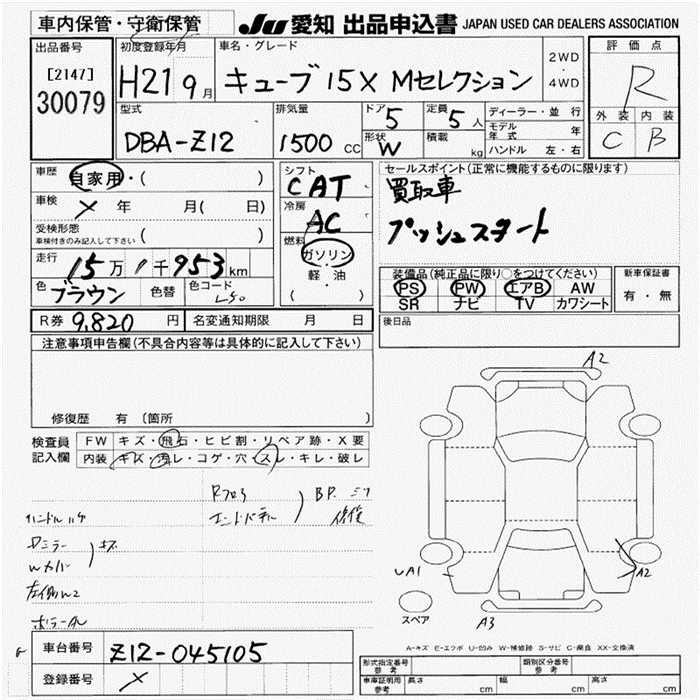 車内保管・守衛保管
JU 愛知 出品申込書 JAPAN USED CAR DEALERS ASSOCIATION
出品番号
[2147]
30079
初度登録年月
H21 9月
車名・グレード
キューブ 15X Mセレクション
2WD
・
4WD
評価点
R
外装 内装
C B
型式
DBA-Z12
排気量
1500 CC
ドア
5
形状
W
定員
5人
積載
kg
ディーラー・並行
モデル年式 年
ハンドル 左・右
車歴
自家用・( )
車検
× 年 月( 日)
受検形態
車検付きのみ記入して下さい ( )
走行
15万1千953km
色
ブラウン
色替
色コード
シフト
CAT
冷房
AC
燃料
ガソリン
・
軽・油
( )
セールスポイント(正常に機能するものに限ります)
買取車
プッシュスタート
装備品(純正品に限り○をつけてください)
PS PW エアB AW
SR ナビ TV カワシート
新車保証書
有・無
R券 9,820円
名変通知期限 月 日
後日品
注意事項申告欄(不具合内容等は具体的に記入して下さい)
修復歴 有 (箇所
検査員
記入欄
FW キズ・飛石・ヒビ割・リペア跡・X要
内装 キズ・汚レ・コゲ・穴・スレ・キレ・破レ
Rフロア
エンドパネル
BP
修復
ハンドル
Dミラー
Wカバー
キズ
A2
UA1
A2
A3
スペア
A-キズ E-エクボ U-凹み W-補修跡 S-サビ C-腐食 XX-交換済
車台番号
Z12-045105
登録番号
×
形式指定番号
参考
類別区分番号
参考
車庫証明用
参考
長さ cm
幅 cm
高さ cm